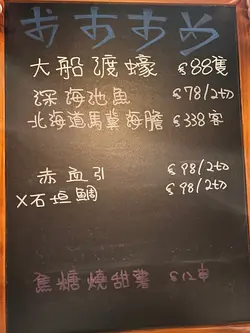 おすすめ
大船渡蠔 $88隻
深海池魚 $78/2切
北海道馬糞海膽 $338客
赤血引 $98/2切
X石垣鯛 $98/2切
焦糖燒甜薯 $12串